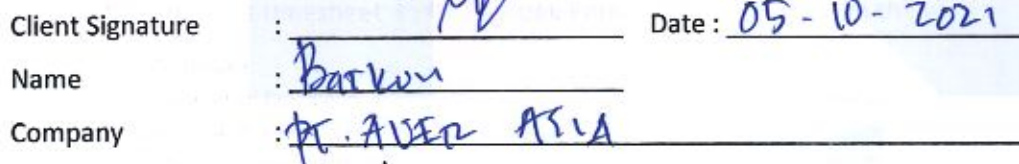 Client Signature : Date : 05 - 10 - 2021
Name : Barkou
Company : PT. AUER ASIA